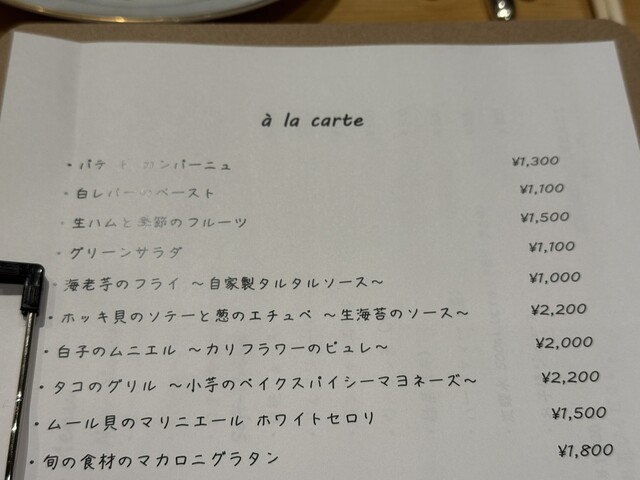 à la carte
・パテ ド カンパーニュ ¥1,300
・白レバーのペースト ¥1,100
・生ハムと季節のフルーツ ¥1,500
・グリーンサラダ ¥1,100
・海老芋のフライ ～自家製タルタルソース～ ¥1,000
・ホッキ貝のソテーと葱のエチュベ ～生海苔のソース～ ¥2,200
・白子のムニエル ～カリフラワーのピュレ～ ¥2,000
・タコのグリル ～小芋のベイクスパイシーマヨネーズ～ ¥2,200
・ムール貝のマリニエール ホワイトセロリ ¥1,500
・旬の食材のマカロニグラタン ¥1,800